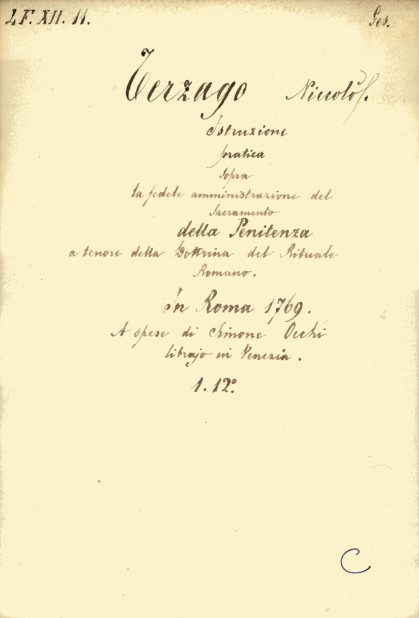 LF. XII. 11. Ges.
Terzago Niccolò f.
Istruzione
pratica
sopra
la fedele amministrazione del
Sacramento
della Penitenza
a tenore della Dottrina del Rituale
Romano.
In Roma 1769.
A spese di Simone Occhi
librajo in Venezia.
1. 12º
C